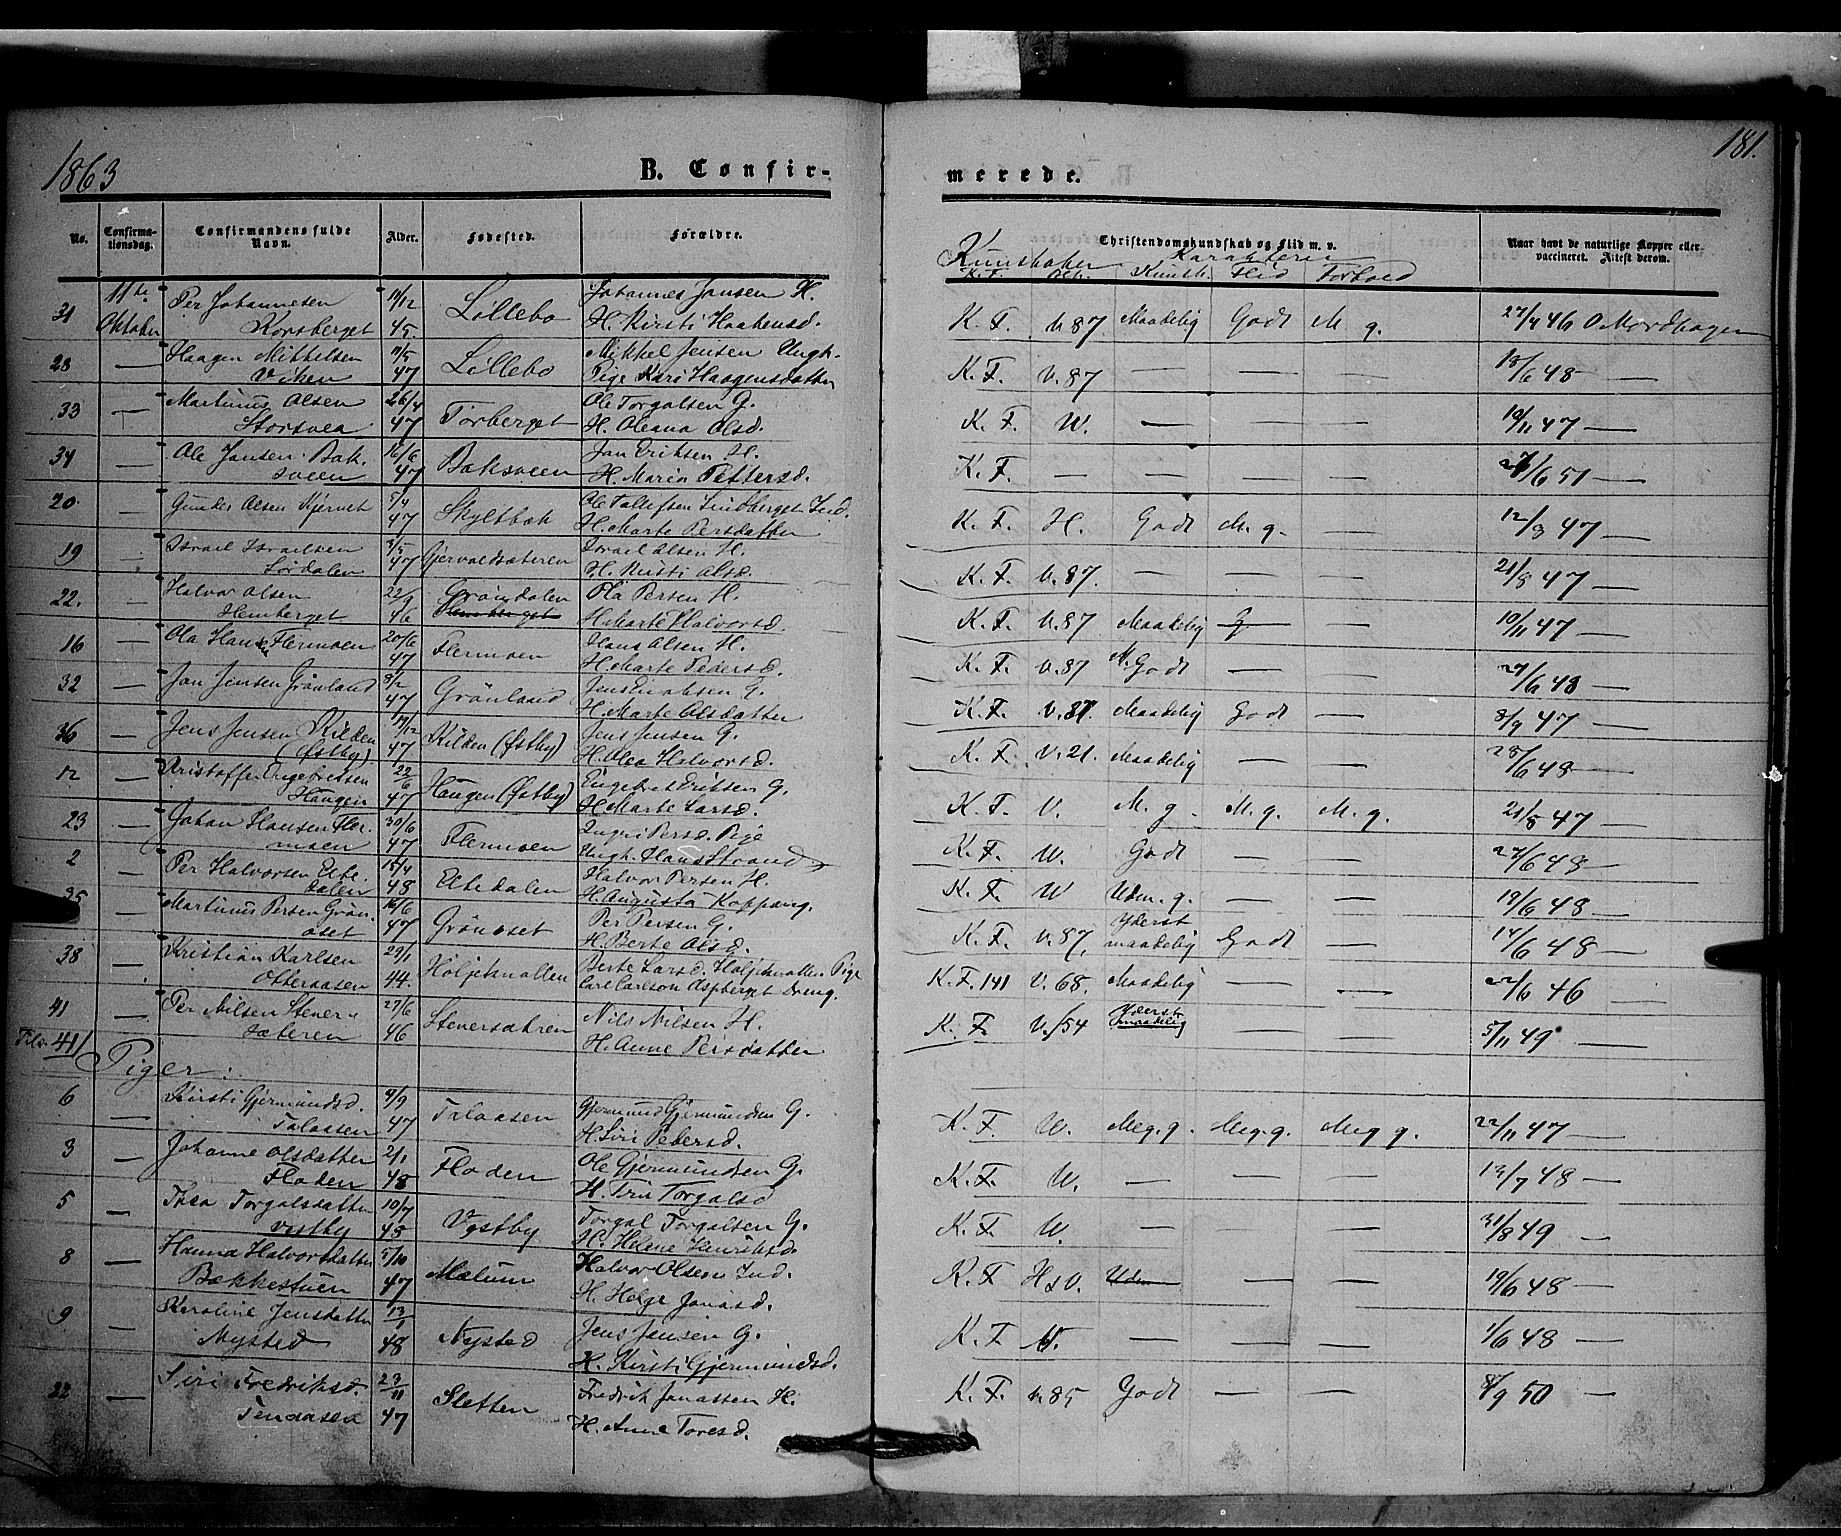 1863
B. Confir-
merede.
181.
No.
Confirma-
tionsdag.
Confirmandens fulde
Navn.
Alder.
Fødested.
Forældre.
Christendomskundskab og Flid m. v.
Kundskaber Karakterer
K.F. Kundsk. Flid Forhold
Naar havt de naturlige Kopper eller
vaccineret. Attest derom.
31 11te Oktober Per Johannesen 11/12 Lillebo Johannes Jansen H. K. F. V. 87. Maadelig Godt M. g. 27/9 46 O Mordhagen
Korsberget 45. H. Kirsti Haakensd.
28 — Haagen Mikkelsen 11/5 Lillebo Mikkel Jensen Ungk. K. F. V. 87 — — — 18/6 48 —
Viken 47 Pige Kari Haagensdatter
33 — Martinus Olsen 26/4 Torberget Ole Torgalsen G. K. F. W. — — — 19/11 47 —
Stortvea 47 H. Oleana Olsd.
34 — Ole Jansen Bak- 16/6 Baksveen Jan Eriksen H. K. F. — — — — 27/6 51 —
sveen 47 H. Maria Pettersd.
20 — Gunder Olsen Kjernet 5/4 Skyltbæk Ole Tollefsen Lindberget Ind. K. F. H. Godt M. g. — 12/9 47 —
47 H. Marte Persdatter
19 — Israel Israelsen 3/5 Gjervaldsæteren Israel Olsen H. K. F. V. 87. — — — 21/8 47 —
Lørdalen 47 H. Kirsti Olsd.
22. — Halvor Olsen 22/9 Grøndalen Ola Persen H. K. F. V. 87 Maadelig G — 10/11 47 —
Hemberget 46 Hemberget H. Marte Halvorsd.
16 — Ola Hans. Flermoen 20/6 Flermoen Hans Olsen H. K. F. V. 87 M. Godt — — 27/6 48 —
47 H. Marte Pedersd.
32 — Jan Jensen Grønland 8/2 Grønland Jens Jacobsen G. K. F. V. 87. Maadelig Godt — 8/9 47 —
47 H. Marte Olsdatter
36 — Jens Jensen Kilden 19/12 Kilden (Østby) Jens Jensen G. K. F. V. 21. Maadelig — — 28/6 48 —
(Østby) 47 H. Olea Halvorsd.
12 — Kristoffer Engebretsen 22/6 Haugen (Østby) Engebret Eriksen G. K. F. V. M. g. M. g. M. g. 21/8 47 —
Haugen 47 H. Marte Larsd.
23 — Johan Hansen Fler- 30/6 Flermoen Ingri Persd. Pige K. F. W. Godt — — 27/6 48 —
moen 47 Ungk. Hans Strand
2 — Per Halvorsen Elte- 15/4 Eltedalen Halvor Persen H. K. F. W Udm. g. — — 19/6 48 —
dalen 48 H. Augusta Koppang.
35 — Martinus Persen Grøn- 16/6 Grønoset Per Persen G. K. F. V. 87. Yderst maadelig Godt — 14/6 48 —
oset 47 H. Berte Olsd.
38 — Kristian Karlsen 29/1 Høljeknollen Berte Larsd. Høljeknollen Pige K. F. 141 V. 68. Maadelig — — 22/6 46 —
Otteraasen 44. Carl Carlson Aspberget Dreng.
41 — Per Nilsen Stener- 27/6 Stenersætren Nils Nilsen H. K. F. V./54 Yderst maadelig — — 5/11 49 —
sæteren 46 H. Anne Persdatter
41
Piger:
6 — Kirsti Gjermundsd. 4/9 Talaasen Gjermund Gjermundsen G. K. F. W. Meg. g. Meg. g. Meg g. 22/11 47 —
Talaasen 47 H. Siri Pedersd.
3 — Johanne Olsdatter 2/1 Floden Ole Gjermundsen G. K. F. W. — — — 13/7 48 —
Floden 48 H. Trii Torgalsd
5 — Thea Torgalsdatter 10/7 Vestby Torgal Torgalsen G. K. F. W. — — — 31/8 49 —
Vestby 48 H. Helene Henriksd.
8 — Hanna Halvorsdatter 5/10 Mælum Halvor Olsen Ind. K. F H & V. Udm — — 19/6 48 —
Bækkestuen 47 H. Helge Jonasd.
9 — Karoline Jensdatter 13/1 Nysted Jens Jensen G. K. F W. — — — 1/6 48 —
Nysted 48 H. Kirsti Gjermundsd.
22 — Siri Fredriksd. 23/11 Sletten Fredrik Jonassen H. K. F V. 85 Godt — — 8/9 50 —
Tenaasen 47 H. Anne Toresd.